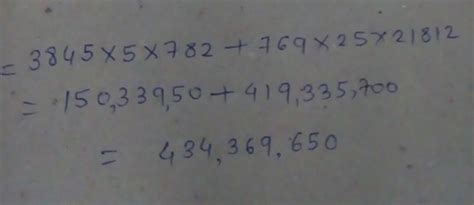 = 3845×5×782 + 769×25×21812
= 150,339,50 + 419,335,700
= 434,369.650